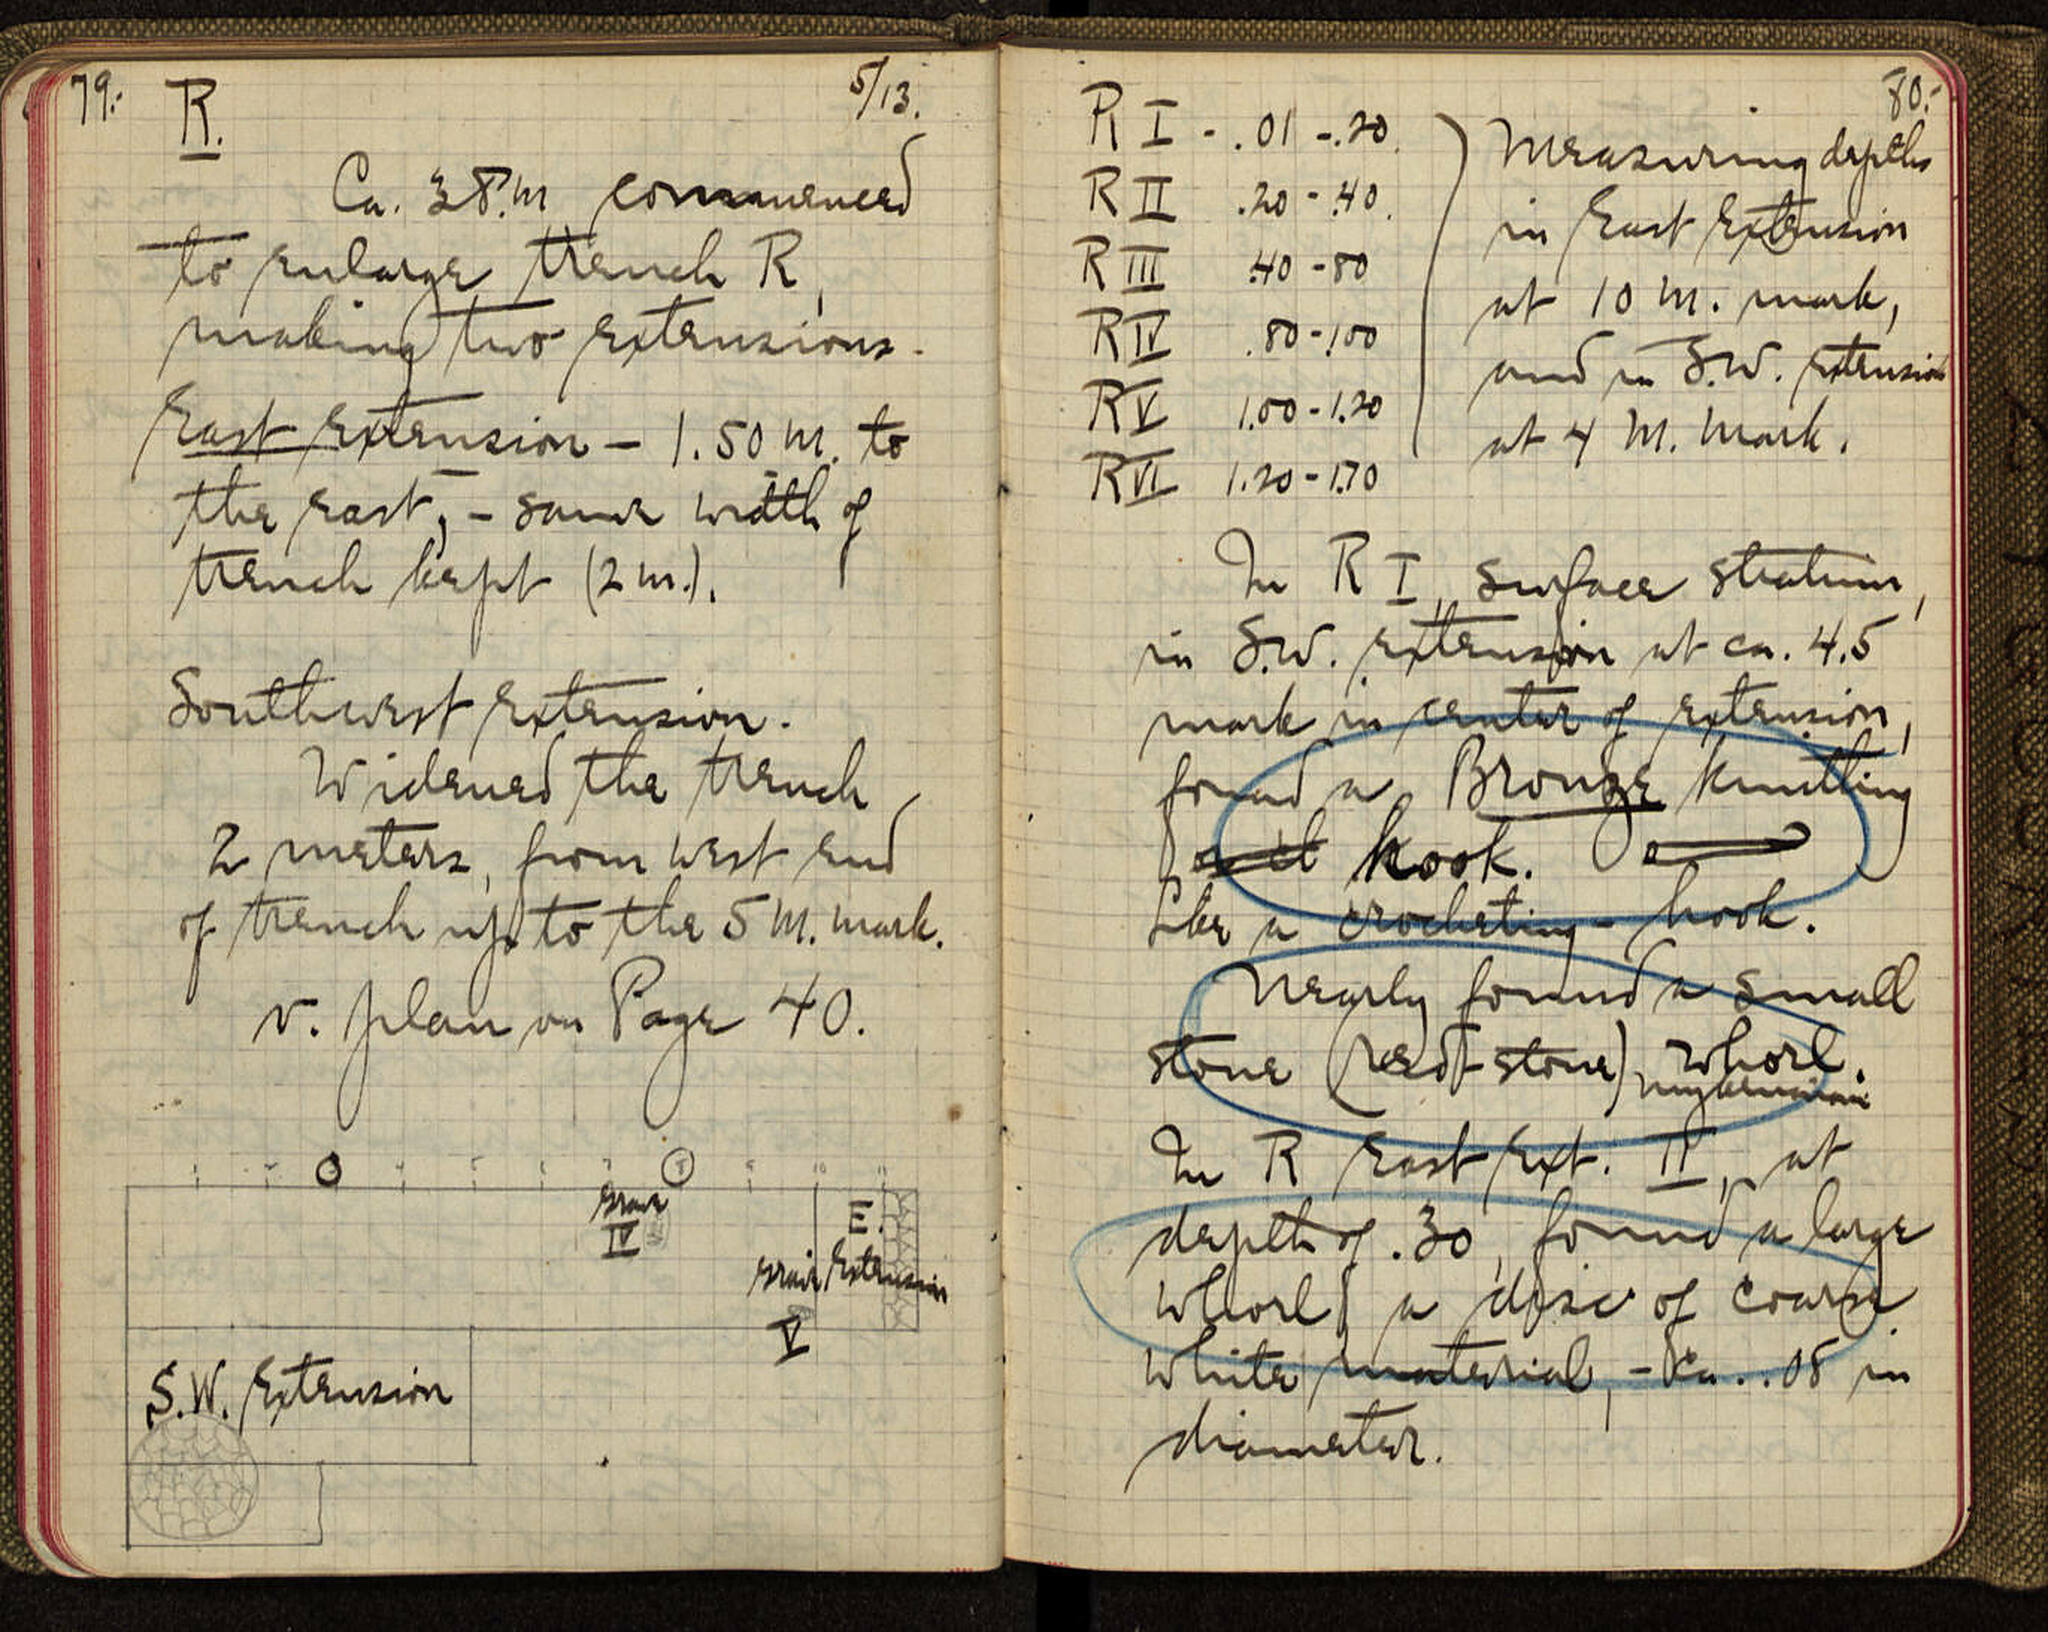 79.-
R.
5/13.
Ca. 3 P.M commenced
to enlarge trench R,
making two extensions.
East Extension – 1.50 m. to
the east, – same width of
trench kept (2 m.).
Southwest Extension.
Widened the trench
2 meters, from west end
of trench up to the 5 M. mark.
v. plan on Page 40.
Grave
IV
E.
Grave Extension
V
S.W. Extension
80.-
R I - .01 - .20
R II .20 - .40.
R III .40 - 80
R IV .80 - .100
R V 1.00 - 1.20
R VI 1.20 - 1.70
Measuring depths
in East Extension
at 10 m. mark,
and in S.W. extension
at 4 M. Mark.
In R I, surface stratum,
in S.W. extension at ca. 4.5
mark in center of extension,
found a Bronze knitting
hook.
Like a crocheting-hook.
Nearly found a small
stone (red-stone) whorl.
In R East Ext. II, at
depth of .30, found a large
whorl, a disc of coarse
white material, – Ca. .08 in
diameter.